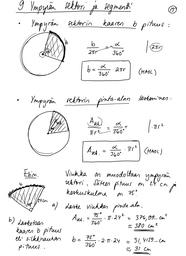 9 Ympyrän sektori ja segmentti
• Ympyrän sektorin kaaren b pituus:
b/2πr = α/360° |·2πr
b = α/360° · 2πr (MAOL)
• Ympyrän sektorin pinta-alan laskeminen:
A_sekt./πr² = α/360° |·πr²
A_sekt. = α/360° · πr² (MAOL)
Esim.
Viuhka on muodoltaan ympyrän
sektori, säteen pituus on 24 cm ja
keskuskulma on 75°.
a) Laske viuhkan pinta-ala.
A_sekt. = 75°/360° · π · 24² = 376,99... cm²
≈ 380 cm²
b) Laske
kaaren b pituus
eli
pituus.
b = 75°/360° · 2 · π · 24 = 31,4159... cm
≈ 31 cm